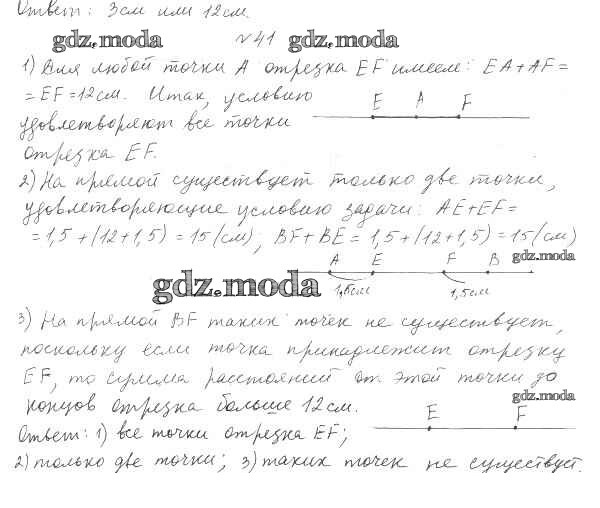 Ответ: 3 см или 12 см.
gdz.moda №41 gdz.moda
1) Для любой точки A отрезка EF имеем: EA + AF =
= EF = 12 см. Итак, условию
E A F
удовлетворяют все точки
отрезка EF.
2) На прямой существует только две точки,
удовлетворяющие условию задачи: AE + EF =
= 1,5 + (12 + 1,5) = 15 (см), BF + BE = 1,5 + (12 + 1,5) = 15 (см)
gdz.moda
A E F B
gdz.moda 1,5см 1,5см
3) На прямой BF таких точек не существует,
поскольку если точка принадлежит отрезку
EF, то сумма расстояний от этой точки до
gdz.moda
концов отрезка больше 12 см.
E F
Ответ: 1) все точки отрезка EF;
2) только две точки; 3) таких точек не существует.